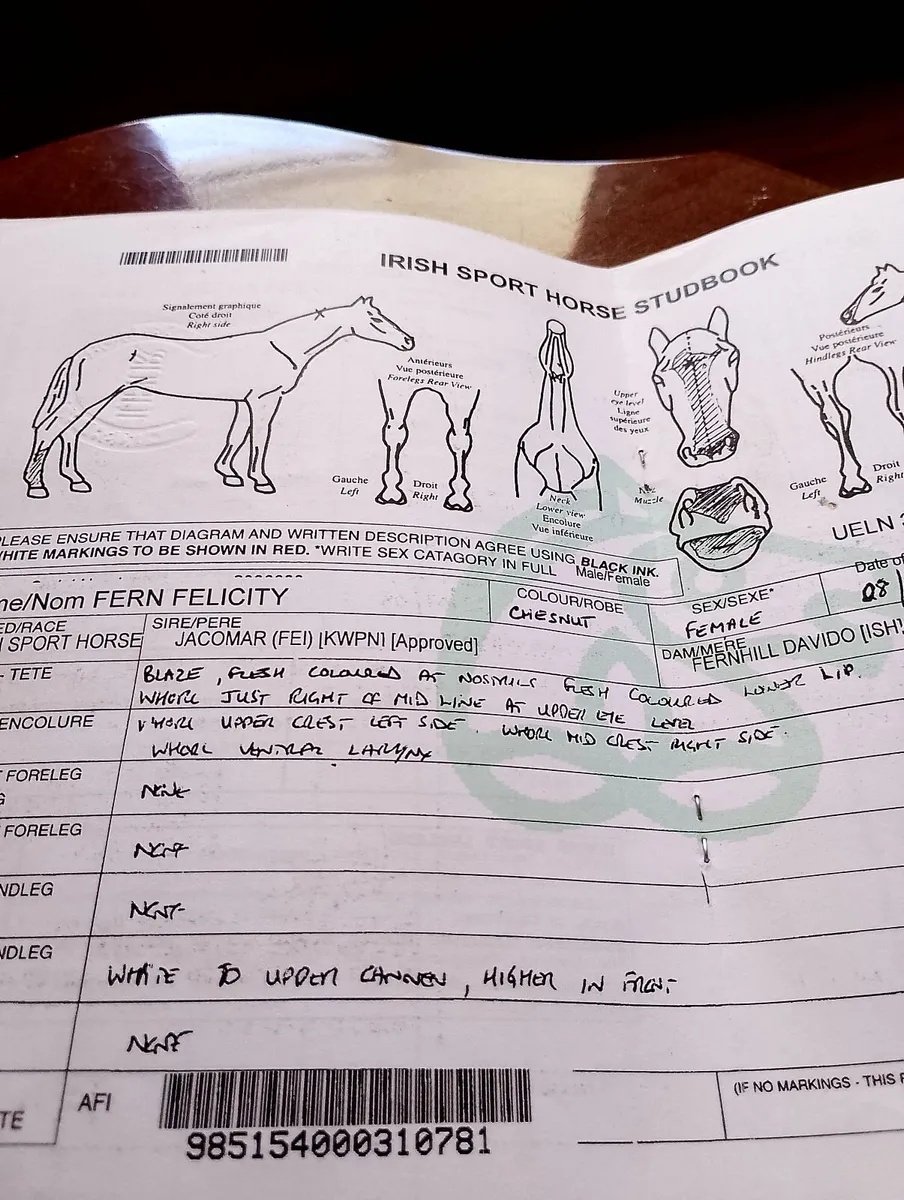 IRISH SPORT HORSE STUDBOOK
Signalement graphique
Coté droit
Right side
Antérieurs
Vue postérieure
Forelegs Rear View
Gauche
Left
Droit
Right
Neck
Lower view
Encolure
Vue inférieure
Upper
eye level
Ligne
supérieure
des yeux
Nez
Muzzle
Postérieurs
Vue postérieure
Hindlegs Rear View
Gauche
Left
Droit
Right
UELN 3
PLEASE ENSURE THAT DIAGRAM AND WRITTEN DESCRIPTION AGREE USING BLACK INK.
WHITE MARKINGS TO BE SHOWN IN RED. *WRITE SEX CATAGORY IN FULL Male/Female
me/Nom FERN FELICITY
COLOUR/ROBE
CHESNUT
SEX/SEXE*
FEMALE
Date of
08
ED/RACE
SPORT HORSE
SIRE/PERE
JACOMAR (FEI) [KWPN] [Approved]
DAM/MERE
FERNHILL DAVIDO [ISH]
- TETE
BLAZE, FLESH COLOURED AT NOSTRILS FLESH COLOURED LOWER LIP.
WHORL JUST RIGHT OF MID LINE AT UPPER EYE LEVEL
ENCOLURE
WHORL UPPER CREST LEFT SIDE. WHORL MID CREST RIGHT SIDE.
WHORL VENTRAL LARYNX
FORELEG
NONE
FORELEG
NONE
NDLEG
NONE
NDLEG
WHITE TO UPPER CANNON, HIGHER IN FRONT
NONE
TE
AFI
985154000310781
(IF NO MARKINGS - THIS